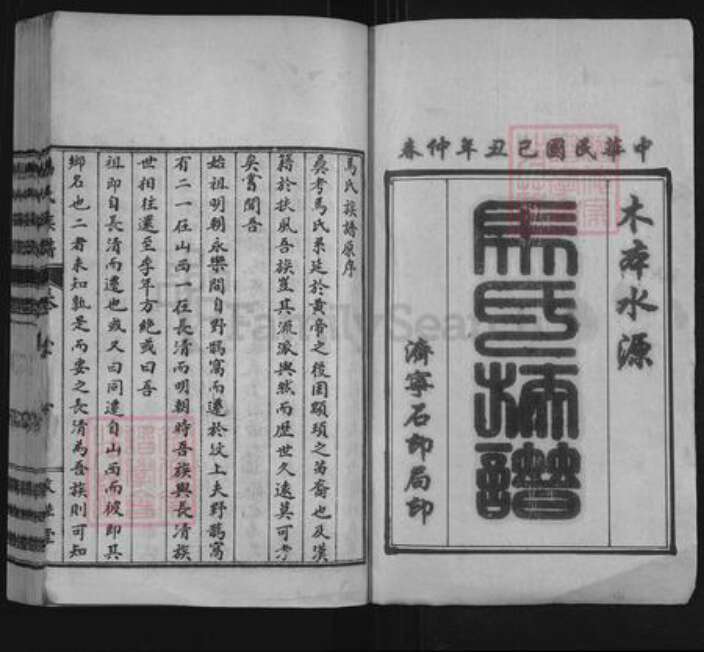 中華民國己丑年仲春
木本水源
馬氏族譜
濟寧石印局印
馬氏族譜原序
奚考馬氏系延於黃帝之後因顓頊之苗裔也及漢
籍於扶風吾族豈其流派與然而歷世久遠莫可考
矣嘗聞吾
始祖明朝永樂間自野鵲窩而遷於汶上夫野鵲窩
有二一在山西一在長清而明朝時吾族與長清族
世相往還至季年方絕或曰吾
祖即自長清而遷也或又曰同遷自山西而彼即其
鄉名也二者未知孰是而要之長清為吾族則可知
馬氏族譜
FamilySearch